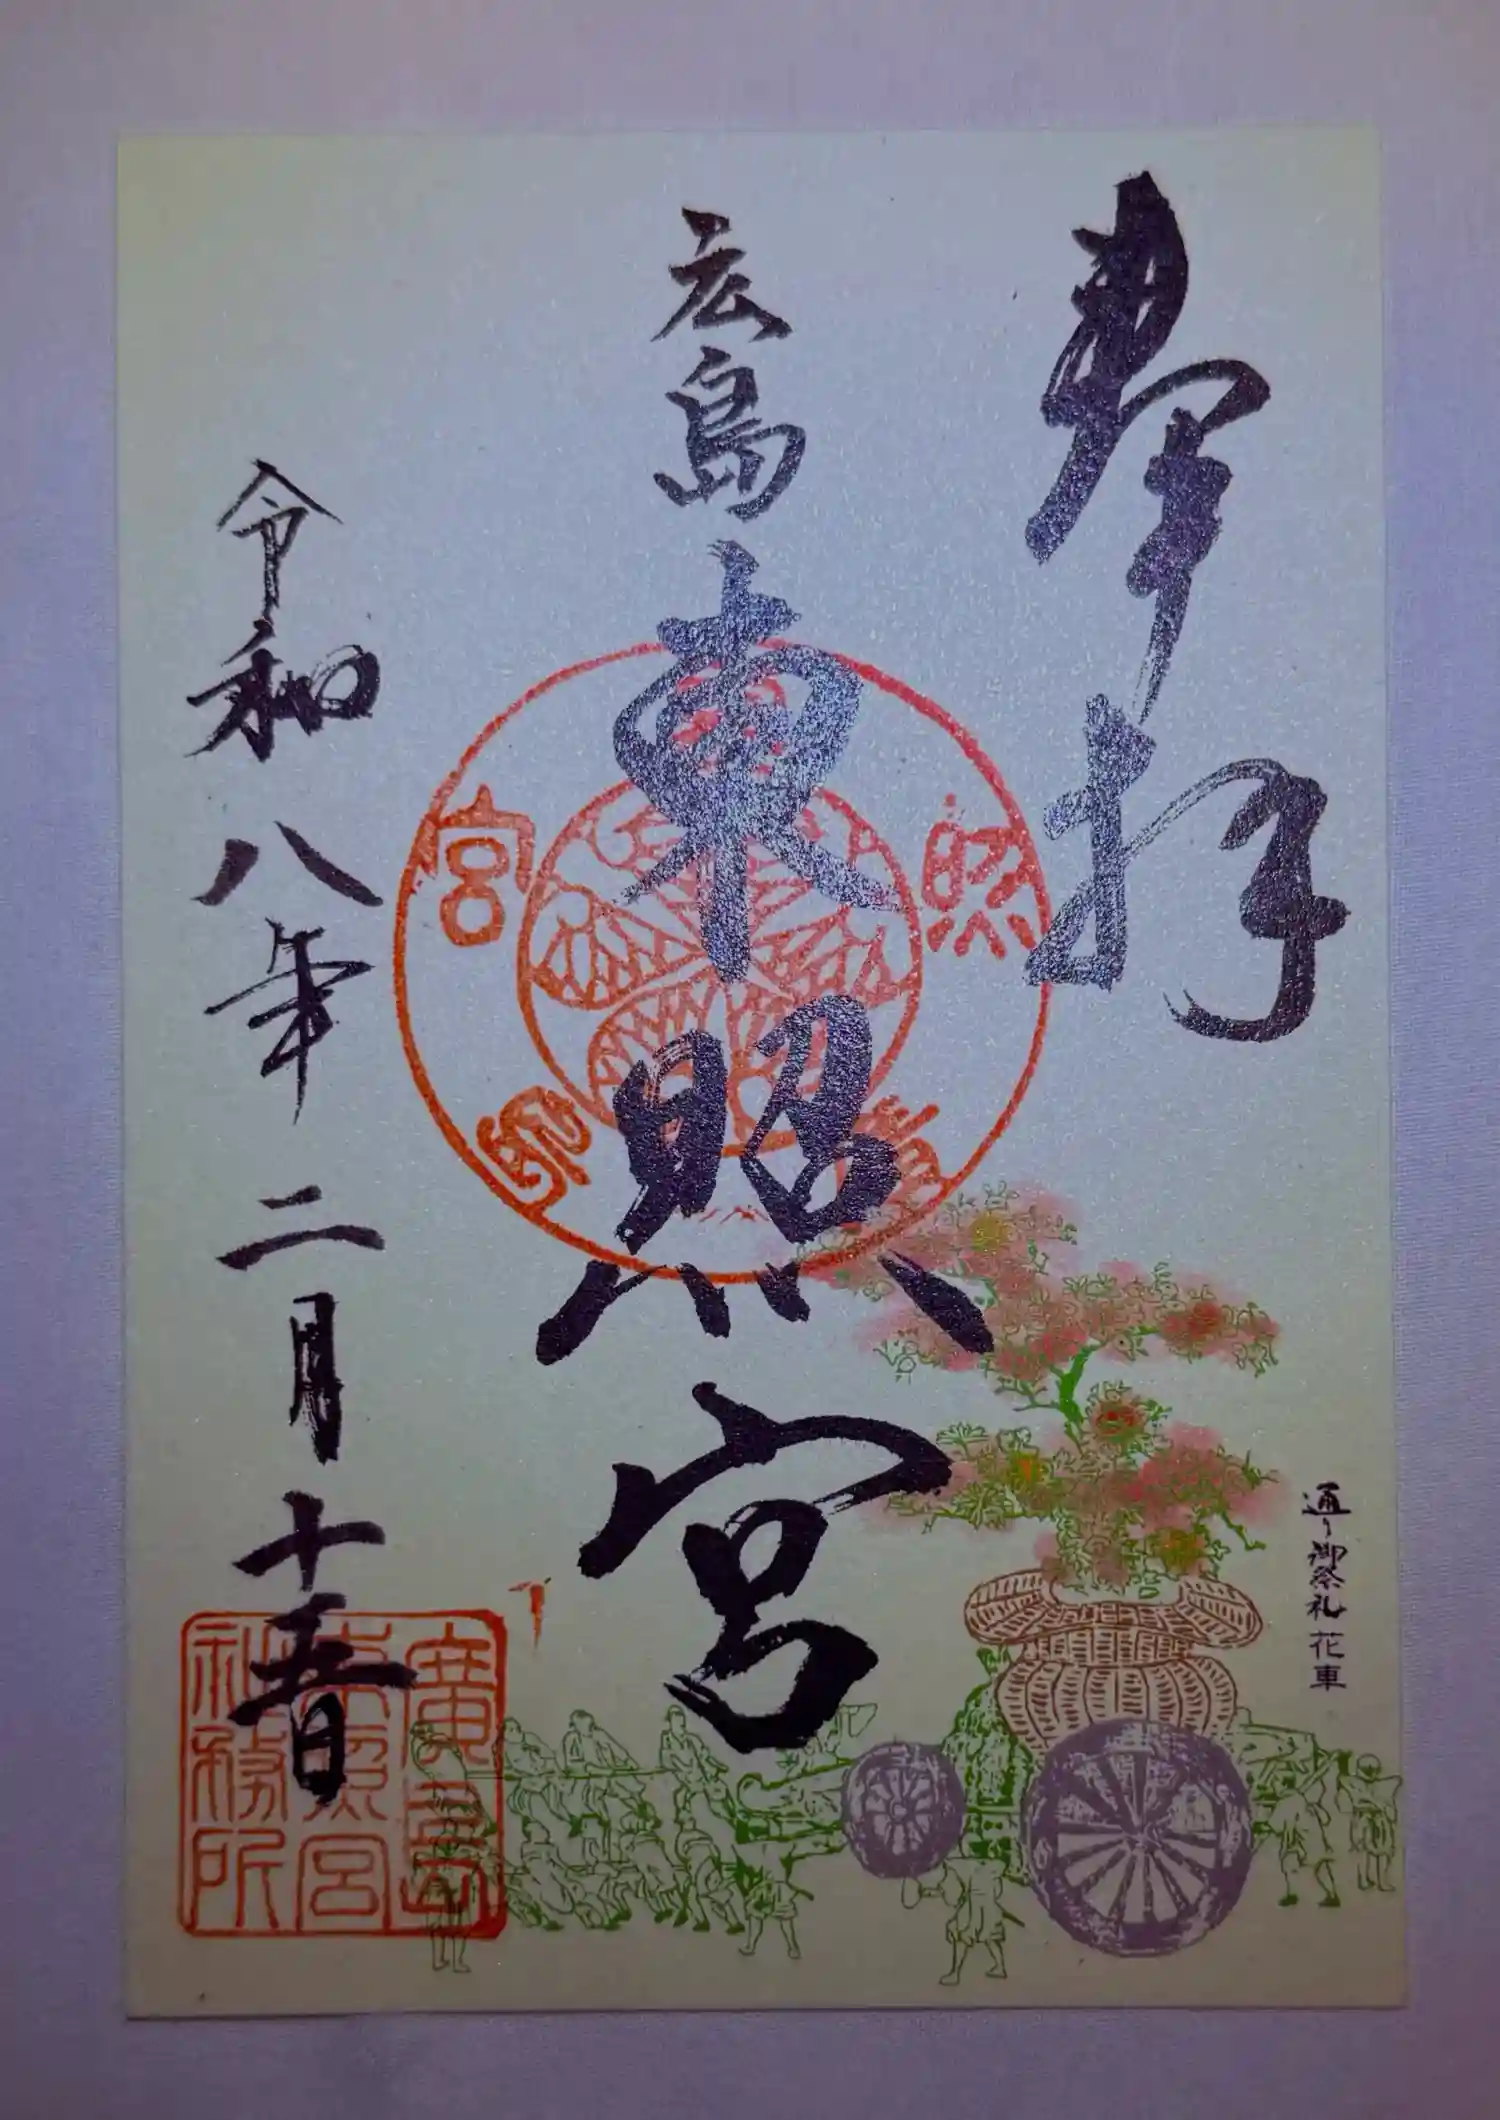 奉拝
広島東照宮
令和八年二月十五日
東照宮
廣島
東照宮
社務所
通り御祭礼 花車